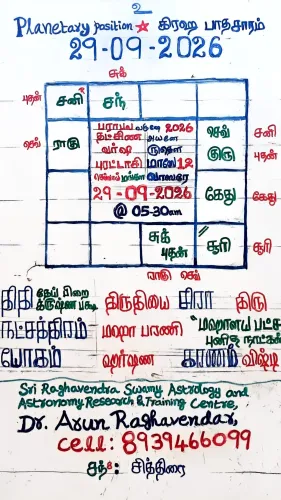 உ
Planetary position ☆ கிரஹ பாதசாரம்
29-09-2026
சுக்
புதன் சனி சந்
செவ் ராகு
பராபவ வருஷம் 2026
தட்சிண அயனம்
வர்ஷ ருதௌ
புரட்டாசி மாஸே 12
29-09-2026
@ 05-30am
செவ் சனி
குரு புதன்
கேது கேது
சுக்
புதன்
சூரி சூரி
ராகு செவ்
திதி தேய்பிறை திருதியை சிரா திரு
க்ருஷ்ண பக்ஷ
நட்சத்திரம் மஷா பரணி "மஹாளய பட்ச
புனித நாட்கள்
யோகம் ஹர்ஷண காணம் விஷ்டி
Sri Raghavendra Swamy Astrology and
Astronomy Research & Training Centre,
Dr. Arun Raghavendar,
cell: 8939466099
சித்திரை